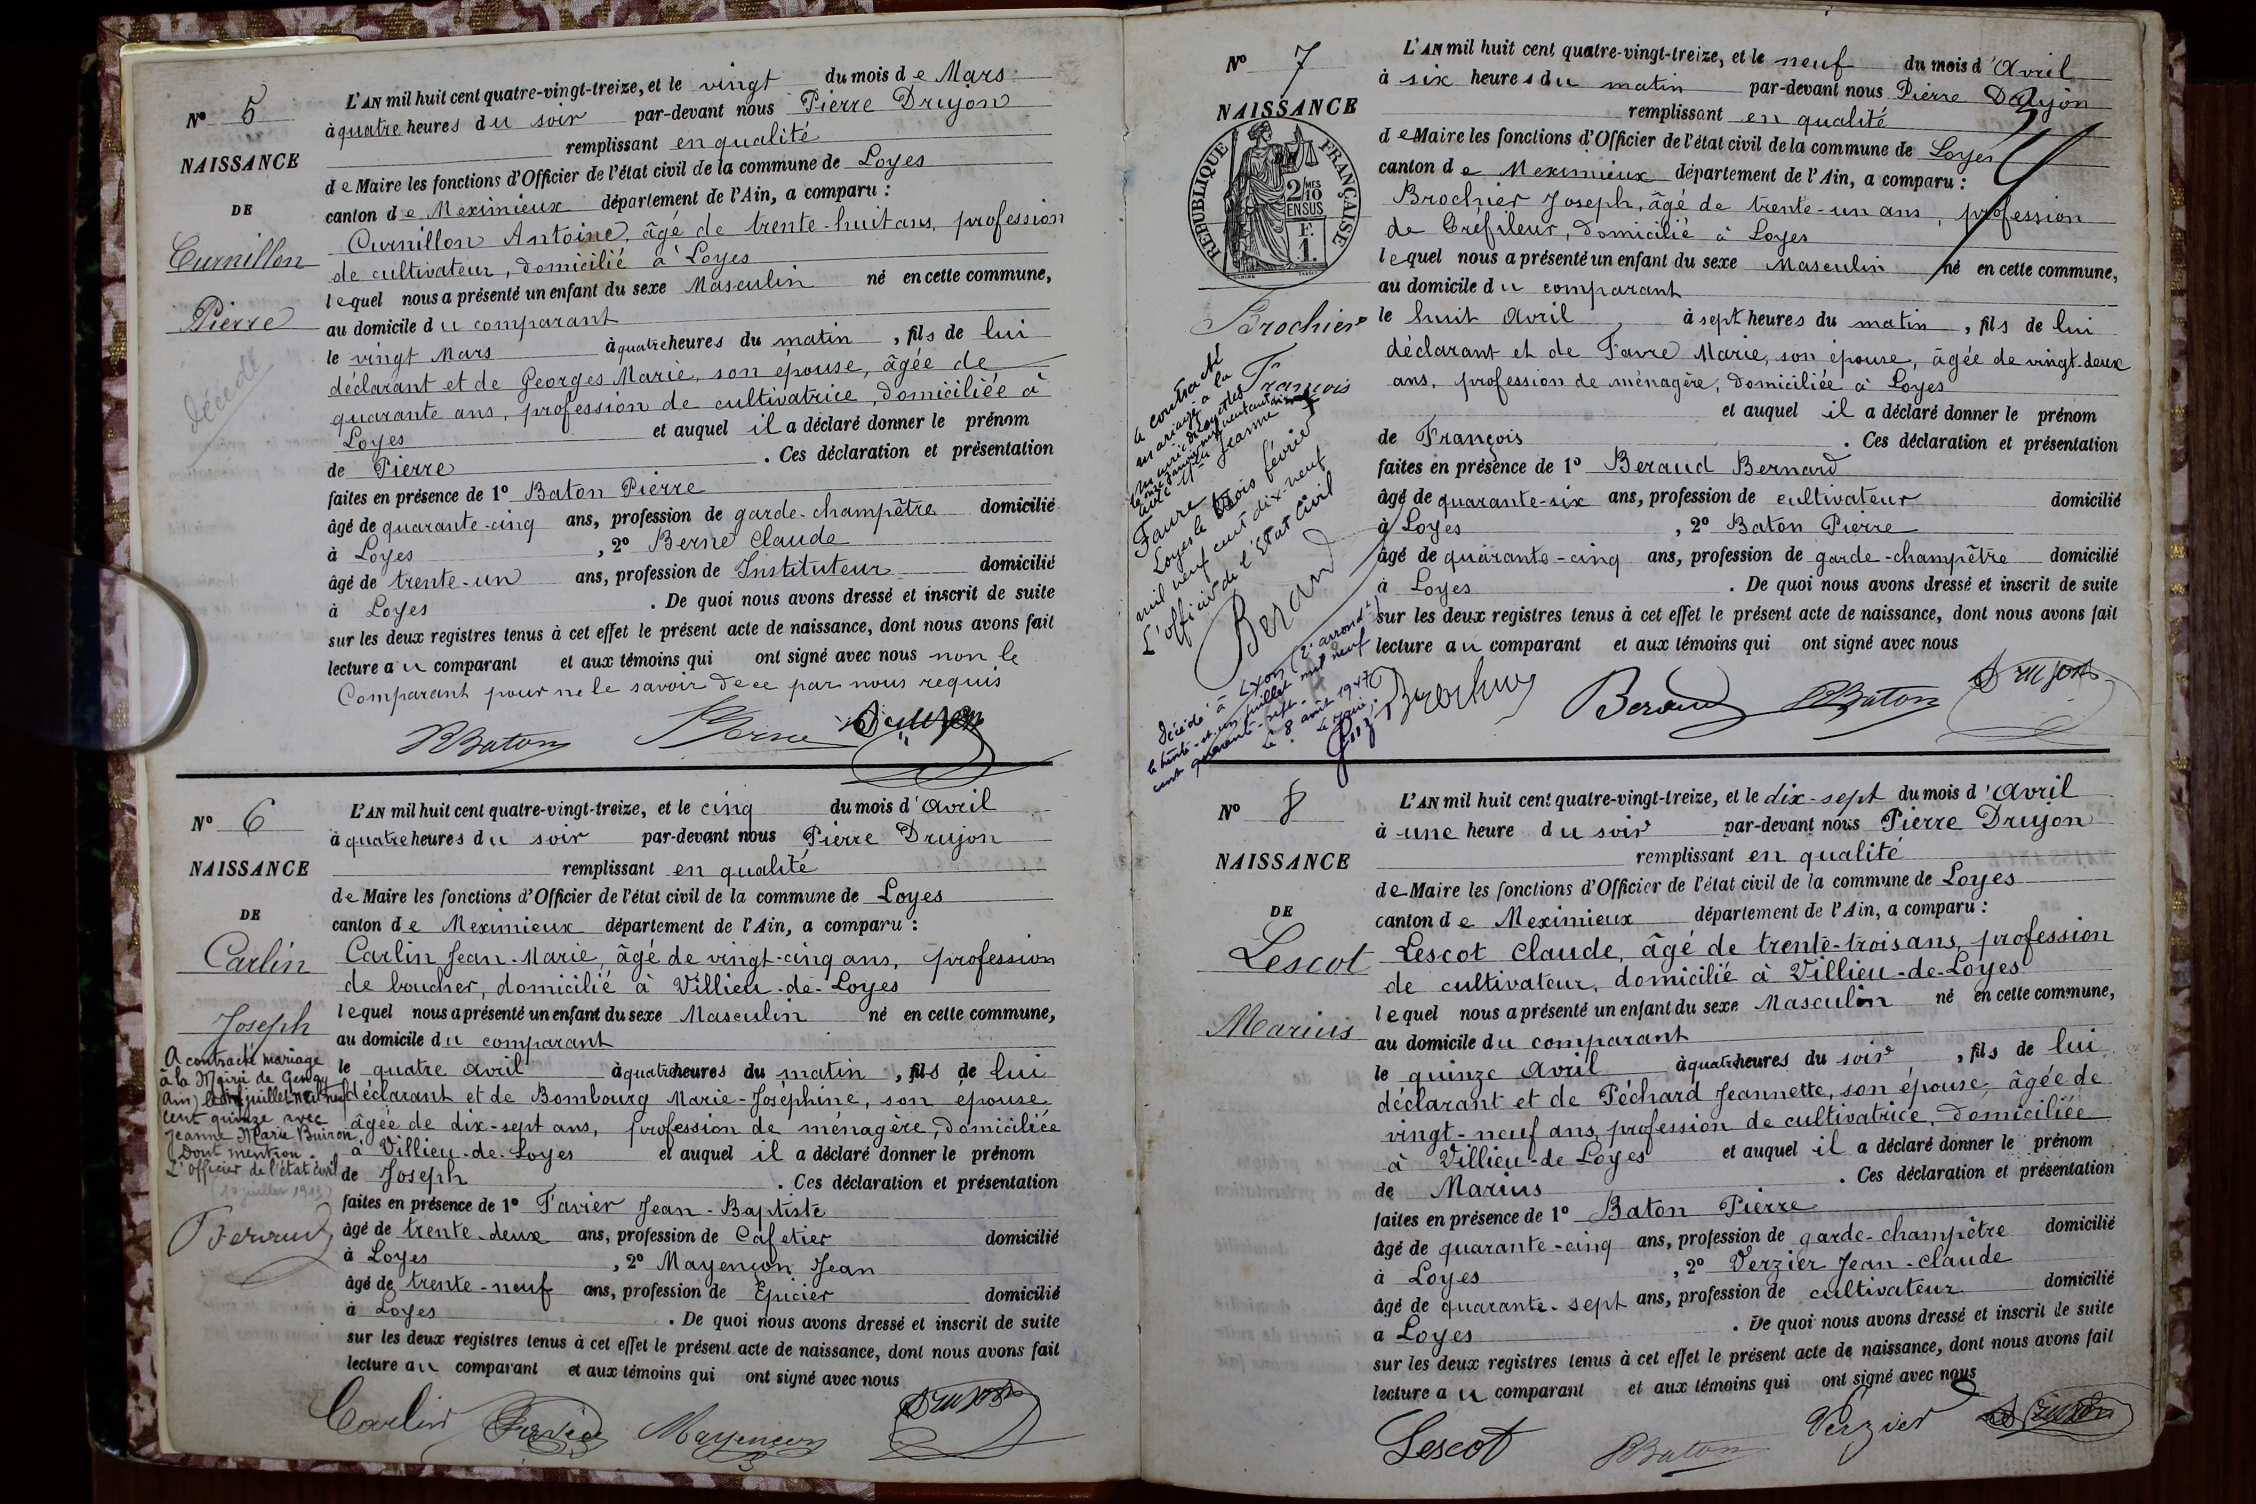 Nº 5
NAISSANCE
DE
Curnillon
Pierre
décédé
L'AN mil huit cent quatre-vingt-treize, et le vingt du mois de Mars
à quatre heures du soir par-devant nous Pierre Drujon
remplissant en qualité
de Maire les fonctions d'Officier de l'état civil de la commune de Loyes
canton de Meximieux département de l'Ain, a comparu :
Curnillon Antoine, âgé de trente-huit ans, profession
de cultivateur, domicilié à Loyes
lequel nous a présenté un enfant du sexe Masculin né en cette commune,
au domicile du comparant
le vingt Mars à quatre heures du matin, fils de lui
déclarant et de Georges Marie, son épouse, âgée de
quarante ans, profession de cultivatrice, domiciliée à
Loyes et auquel il a déclaré donner le prénom
de Pierre . Ces déclaration et présentation
faites en présence de 1º Baton Pierre
âgé de quarante-cinq ans, profession de garde-champêtre domicilié
à Loyes , 2º Berne Claude
âgé de trente-un ans, profession de Instituteur domicilié
à Loyes . De quoi nous avons dressé et inscrit de suite
sur les deux registres tenus à cet effet le présent acte de naissance, dont nous avons fait
lecture au comparant et aux témoins qui ont signé avec nous non le
Comparant pour ne le savoir de ce par nous requis
PBaton Berne Drujon
Nº 6
NAISSANCE
DE
Carlin
Joseph
A contracté mariage
à la Mairie de
Ain) le dix juillet mil neuf
cent quinze avec
Jeanne Marie Buiron
Dont mention.
L'officier de l'état civil
Feraud
L'AN mil huit cent quatre-vingt-treize, et le cinq du mois d'Avril
à quatre heures du soir par-devant nous Pierre Drujon
remplissant en qualité
de Maire les fonctions d'Officier de l'état civil de la commune de Loyes
canton de Meximieux département de l'Ain, a comparu :
Carlin Jean-Marie, âgé de vingt-cinq ans, profession
de boucher, domicilié à Villieu-de-Loyes
lequel nous a présenté un enfant du sexe Masculin né en cette commune,
au domicile du comparant
le quatre avril à quatre heures du matin, fils de lui
déclarant et de Bombourg Marie-Joséphine, son épouse
âgée de dix-sept ans, profession de ménagère, domiciliée
à Villieu-de-Loyes et auquel il a déclaré donner le prénom
de Joseph . Ces déclaration et présentation
faites en présence de 1º Favier Jean-Baptiste
âgé de trente-deux ans, profession de Cafetier domicilié
à Loyes , 2º Mayençon Jean
âgé de trente-neuf ans, profession de Epicier domicilié
à Loyes . De quoi nous avons dressé et inscrit de suite
sur les deux registres tenus à cet effet le présent acte de naissance, dont nous avons fait
lecture au comparant et aux témoins qui ont signé avec nous
Carlin Favier Mayençon Drujon
Nº 7
NAISSANCE
RÉPUBLIQUE FRANÇAISE
2/10 MES
EN SUS
F.
1.
Brochier
François
a contracté
mariage à la
mairie de Loyettes
avec
Faure Jeanne
Loyes le trois février
mil neuf cent dix-neuf
L'officier de l'Etat Civil
Beraud
Décédé à Lyon (2e arrondt)
le trente-et-un juillet mil neuf
cent quarante-sept.
Le 8 août 1947
Le Maire,
L'AN mil huit cent quatre-vingt-treize, et le neuf du mois d'Avril
à six heures du matin par-devant nous Pierre Drujon
remplissant en qualité
de Maire les fonctions d'Officier de l'état civil de la commune de Loyes
canton de Meximieux département de l'Ain, a comparu :
Brochier Joseph, âgé de trente-un ans, profession
de Tréfileur, domicilié à Loyes
lequel nous a présenté un enfant du sexe Masculin né en cette commune,
au domicile du comparant
le huit Avril à sept heures du matin, fils de lui
déclarant et de Favre Marie, son épouse, âgée de vingt-deux
ans, profession de ménagère, domiciliée à Loyes
et auquel il a déclaré donner le prénom
de François . Ces déclaration et présentation
faites en présence de 1º Beraud Bernard
âgé de quarante-six ans, profession de cultivateur domicilié
à Loyes , 2º Baton Pierre
âgé de quarante-cinq ans, profession de garde-champêtre domicilié
à Loyes . De quoi nous avons dressé et inscrit de suite
sur les deux registres tenus à cet effet le présent acte de naissance, dont nous avons fait
lecture au comparant et aux témoins qui ont signé avec nous
Brochier Beraud PBaton Drujon
Nº 8
NAISSANCE
DE
Lescot
Marius
L'AN mil huit cent quatre-vingt-treize, et le dix-sept du mois d'Avril
à une heure du soir par-devant nous Pierre Drujon
remplissant en qualité
de Maire les fonctions d'Officier de l'état civil de la commune de Loyes
canton de Meximieux département de l'Ain, a comparu :
Lescot Claude, âgé de trente-trois ans, profession
de cultivateur, domicilié à Villieu-de-Loyes
lequel nous a présenté un enfant du sexe Masculin né en cette commune,
au domicile du comparant
le quinze Avril à quatre heures du soir, fils de lui
déclarant et de Péchard Jeannette, son épouse âgée de
vingt-neuf ans, profession de cultivatrice, domiciliée
à Villieu-de Loyes et auquel il a déclaré donner le prénom
de Marius . Ces déclaration et présentation
faites en présence de 1º Baton Pierre
âgé de quarante-cinq ans, profession de garde-champêtre domicilié
à Loyes , 2º Verzier Jean-Claude
âgé de quarante-sept ans, profession de cultivateur domicilié
à Loyes . De quoi nous avons dressé et inscrit de suite
sur les deux registres tenus à cet effet le présent acte de naissance, dont nous avons fait
lecture au comparant et aux témoins qui ont signé avec nous
Lescot PBaton Verzier Drujon